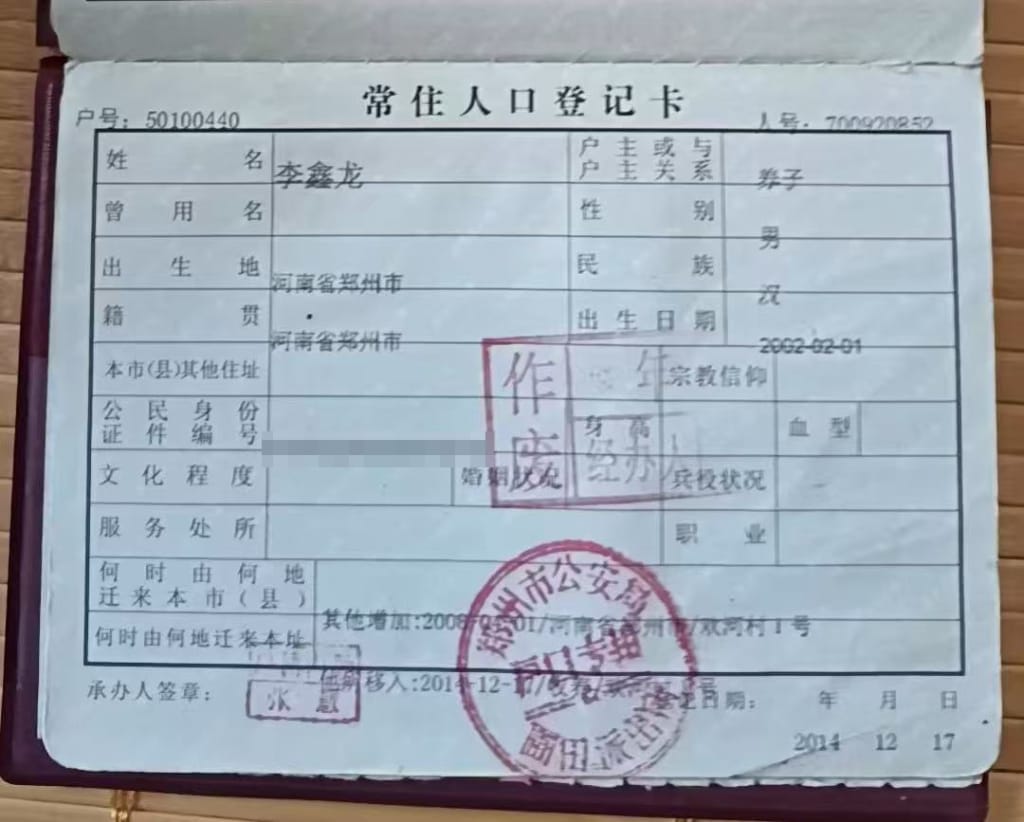 常住人口登记卡
户号：50100440 人号：700920852
姓名 李鑫龙 户主或与户主关系 养子
曾用名 性别 男
出生地 河南省郑州市 民族 汉
籍贯 河南省郑州市 出生日期 2002-02-01
本市(县)其他住址 宗教信仰
公民身份证件编号 身高 血型
文化程度 婚姻状况 兵役状况
服务处所 职业
何时由何地迁来本市(县) 其他增加:2008 01/河南省 州市/双河村1号
何时由何地迁来本址 移入:2014-12-17/
承办人签章： 登记日期： 年 月 日
2014 12 17
作废
年
经办人
张慧
郑州市公安局
户口专用
派出所